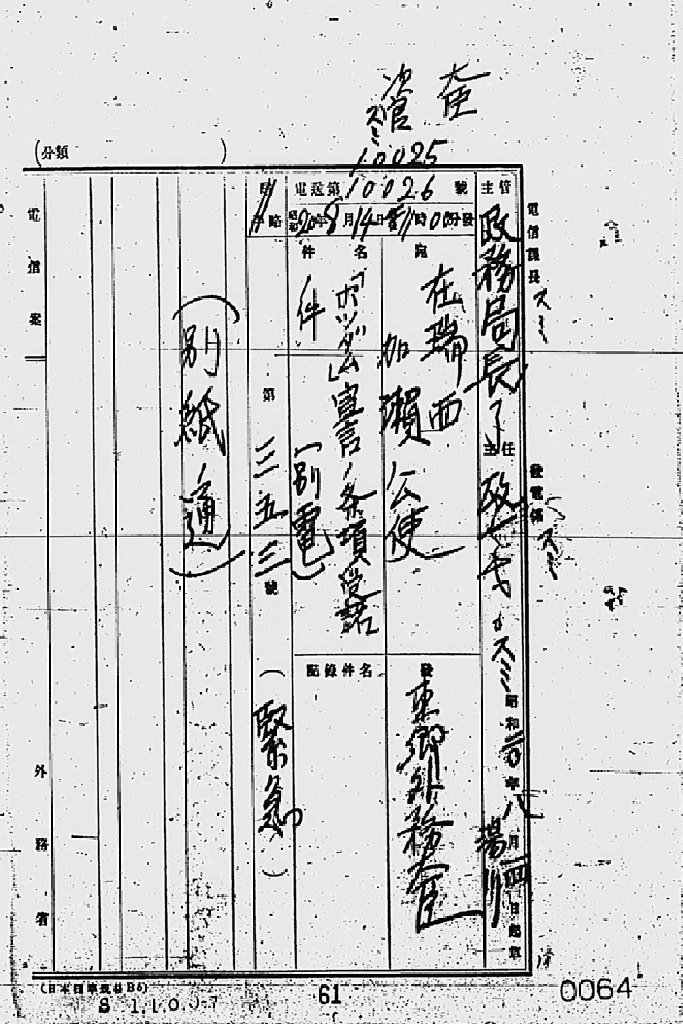 大臣
次官
スミ
10025
(分類 )
電信課長 スミ
發電係 スミ
主管 政務局長
主任
昭和二〇年八月一四日起草
電送第10026號
昭和20年8月14日 時00分發
暗
略
宛 在瑞西
加瀬公使
發 東郷外務大臣
件名 「ポツダム」宣言ノ条項受諾
件 (別電)
記錄件名
第三五三號 (緊急)
(別紙ノ通)
電信案
外務省
(日本標準規格B5)
61
0064